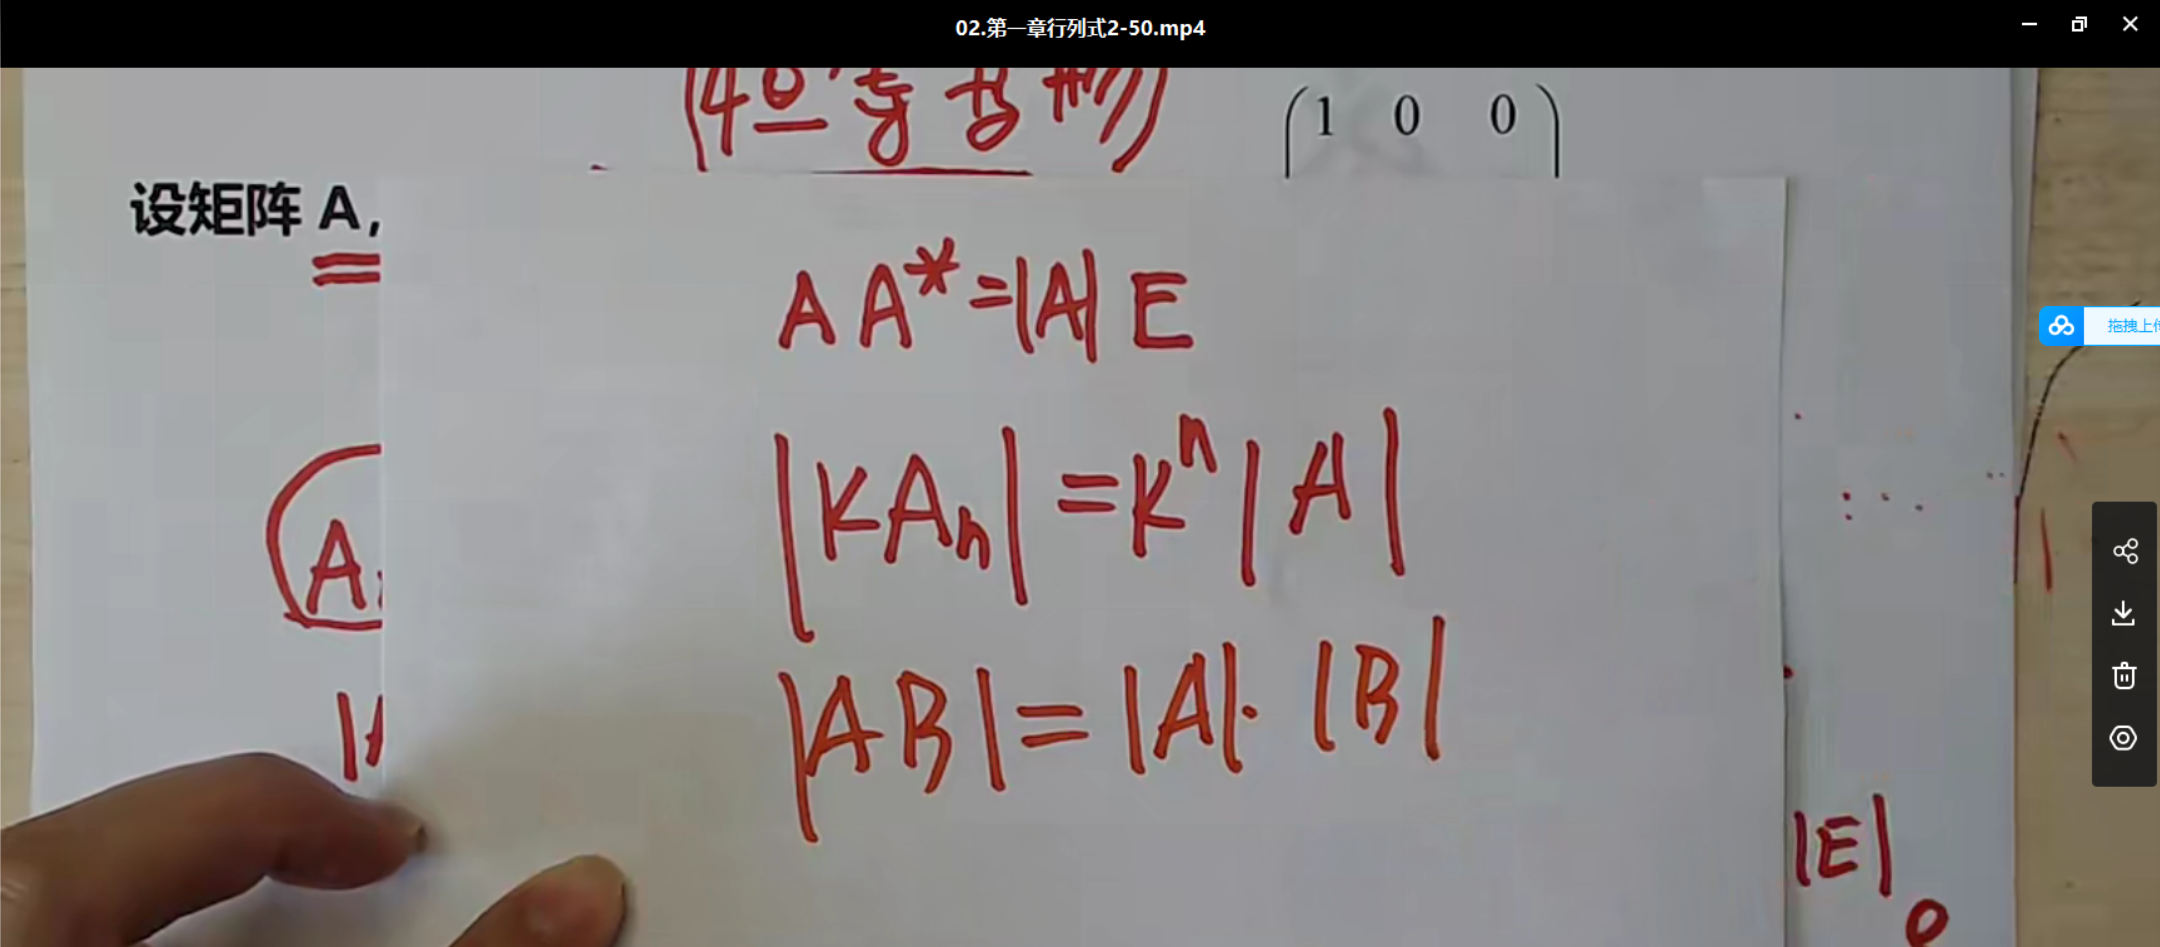 02.第一章行列式2-50.mp4
1 0 0
设矩阵 A,
AA*=|A|E
|KAₙ|=Kⁿ|A|
A
|AB|=|A|·|B|
|E|
拖拽上传